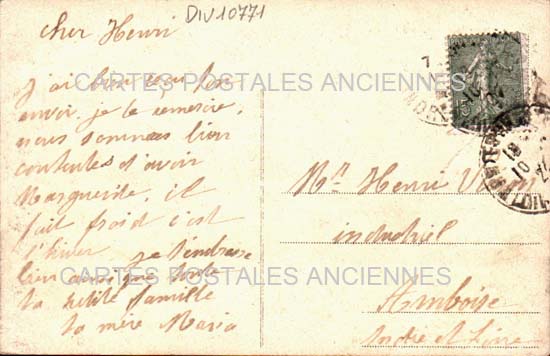 DIV10771
Cher Henri
j'ai bien reçu ton
envoi je te remercie,
nous sommes bien
contentes d'avoir
Marguerite, il
fait froid c'est
l'hiver je t'embrasse
bien ainsi que toute
ta petite famille
ta mère Maria
CARTES POSTALES ANCIENNES
Mr Henri
industriel
CARTES POSTALES ANCIENNES
Amboise
Indre et Loire